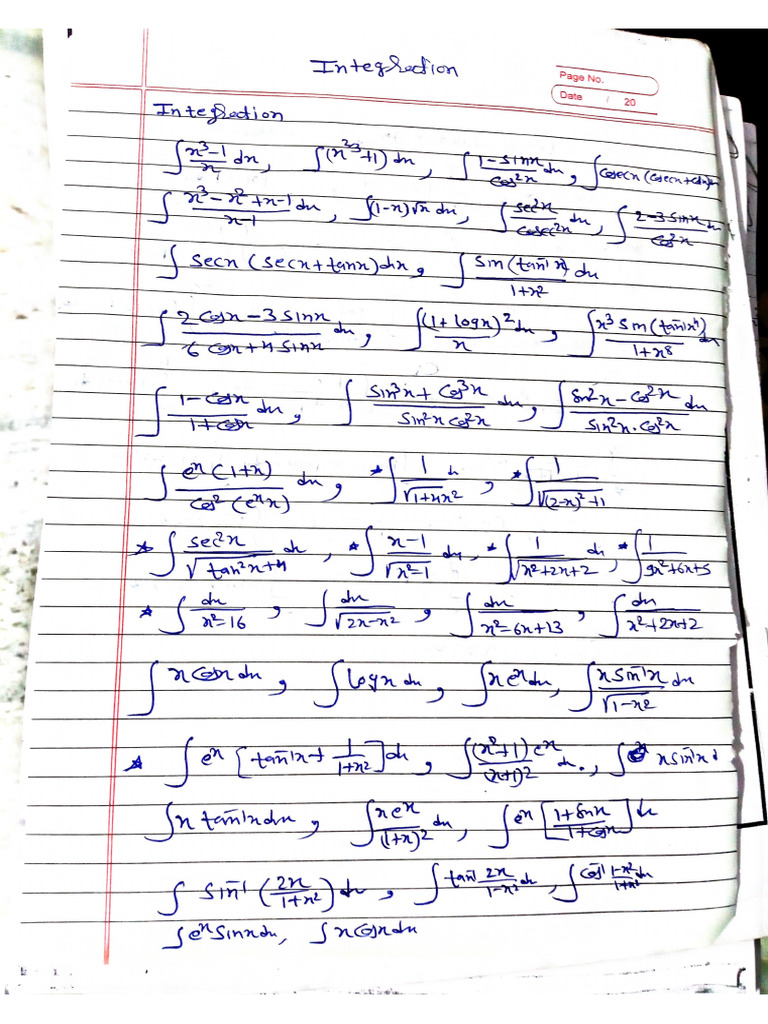 Integration
Page No.
Date / 20
Integration
∫ (x³-1)/x dx, ∫(x^{2/3}+1) dx, ∫ (1-sinx)/cos²x dx, ∫cosecx (cosecx+cotx)dx
∫ (x³-x²+x-1)/(x-1) dx, ∫(1-x)√x dx, ∫ sec²x/cosec²x dx, ∫ (2-3sinx)/cos²x dx
∫ secx (secx+tanx)dx, ∫ sin(tan⁻¹x)/(1+x²) dx
∫ (2cosx-3sinx)/(6cosx+4sinx) dx, ∫ (1+logx)²/x dx, ∫ x³sin(tan⁻¹x⁴)/(1+x⁸) dx
∫ (1-cosx)/(1+cosx) dx, ∫ (sin³x+cos³x)/(sin²x cos²x) dx, ∫ (sin²x-cos²x)/(sin²x.cos²x) dx
∫ eˣ(1+x)/cos²(eˣx) dx, *∫ 1/√(1+4x²) dx, *∫ 1/√((2-x)²+1)
*∫ sec²x/√(tan²x+4) dx, *∫ (x-1)/√(x²-1) dx, *∫ 1/√(x²+2x+2) dx *∫ 1/(9x²+6x+5)
*∫ dx/(x²-16), ∫ dx/√(2x-x²), ∫ dx/(x²-6x+13), ∫ dx/(x²+2x+2)
∫ x cosx dx, ∫ logx dx, ∫ xeˣdx, ∫ x sin⁻¹x/√(1-x²) dx
*∫ eˣ [tan⁻¹x + 1/(1+x²)]dx, ∫ (x²+1)eˣ/(x+1)² dx., ∫ x sin⁻¹x d
∫ x tan⁻¹x dx, ∫ xeˣ/(1+x)² dx, ∫ eˣ [(1+sinx)/(1+cosx)] dx
∫ sin⁻¹(2x/(1+x²)) dx, ∫ tan⁻¹ 2x/(1-x²) dx, ∫ cos⁻¹ (1-x²)/(1+x²) dx
∫ eˣ sinx dx, ∫ x cosx dx